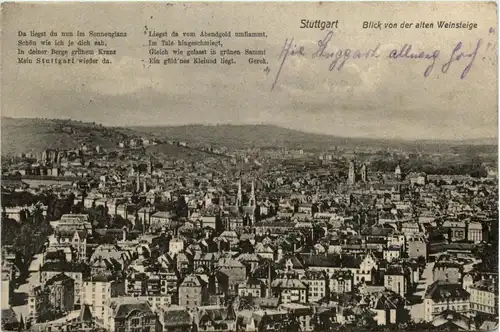 Stuttgart
Blick von der alten Weinsteige
Da liegst du nun im Sonnenglanz
Schön wie ich je dich sah,
In deiner Berge grünem Kranz
Mein Stuttgart wieder da.
Liegst da vom Abendgold umflammt,
Im Tale hingeschmiegt,
Gleich wie gefasst in grünen Samt
Ein güld'nes Kleinod liegt. Gerok.